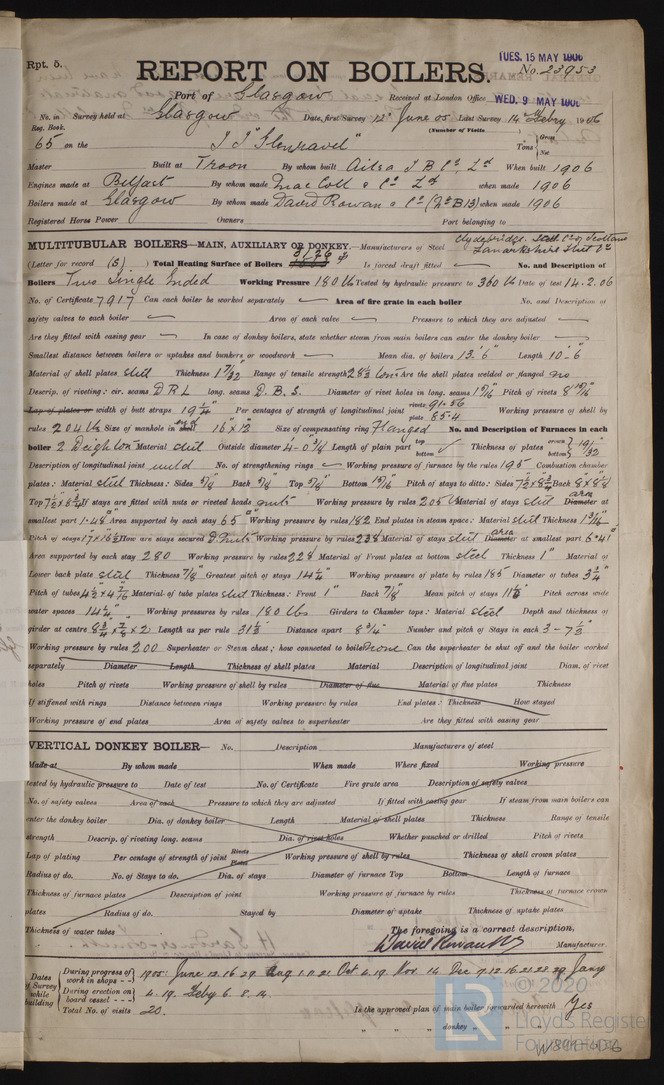 Rpt. 5.
TUES. 15 MAY 1906
REPORT ON BOILERS.
No. 23953
Port of Glasgow Received at London Office WED. 9 MAY 1906
No. in Reg. Book. Survey held at Glasgow Date, first Survey 12th June 05 Last Survey 14th Febry 1906
(Number of Visits
65 on the "Glenravel" Tons { Gross Net
Master Built at Troon By whom built Ailsa S B Co Ld When built 1906
Engines made at Belfast By whom made MacColl & Co Ld when made 1906
Boilers made at Glasgow By whom made David Rowan & Co (No B13) when made 1906
Registered Horse Power Owners Port belonging to
MULTITUBULAR BOILERS—MAIN, AUXILIARY OR DONKEY.—Manufacturers of Steel Clydebridge Steel Co, Scotland Lanarkshire
(Letter for record (S)) Total Heating Surface of Boilers 3196 Is forced draft fitted No. and Description of
Boilers Two Single Ended Working Pressure 180 lbs Tested by hydraulic pressure to 360 lbs Date of test 14.2.06
No. of Certificate 7917 Can each boiler be worked separately Area of fire grate in each boiler No. and Description of
safety valves to each boiler Area of each valve Pressure to which they are adjusted
Are they fitted with easing gear In case of donkey boilers, state whether steam from main boilers can enter the donkey boiler
Smallest distance between boilers or uptakes and bunkers or woodwork Mean dia. of boilers 13'6" Length 10'-6"
Material of shell plates steel Thickness 1 7/32 Range of tensile strength 28 1/2 tons Are the shell plates welded or flanged no
Descrip. of riveting: cir. seams D R L long. seams D. B. S. Diameter of rivet holes in long. seams 1 5/16 Pitch of rivets 8 15/16
Lap of plates or width of butt straps 19 1/4" Per centages of strength of longitudinal joint rivets 91.56 plate 85.4 Working pressure of shell by
rules 204 lbs Size of manhole in end 16" x 12" Size of compensating ring Flanged No. and Description of Furnaces in each
boiler 2 Deighton Material steel Outside diameter 4'-0 3/4 Length of plain part top bottom Thickness of plates crown bottom } 19/32
Description of longitudinal joint weld No. of strengthening rings Working pressure of furnace by the rules 195 Combustion chamber
plates: Material steel Thickness: Sides Back Top Bottom Pitch of stays to ditto: Sides 7 1/2 x 8 3/4 Back 8 x 8 1/8
Top 7 1/2 x 8 3/4 If stays are fitted with nuts or riveted heads nuts Working pressure by rules 205 lbs Material of stays steel area Diameter at
smallest part 1.48 Area supported by each stay 65 Working pressure by rules 182 End plates in steam space: Material steel Thickness 1 3/16
Pitch of stays 17 x 16 1/2 How are stays secured D.nuts Working pressure by rules 238 Material of stays steel area Diameter at smallest part 6.41
Area supported by each stay 280 Working pressure by rules 228 Material of Front plates at bottom steel Thickness 1" Material of
Lower back plate steel Thickness 7/8" Greatest pitch of stays 14 1/4" Working pressure of plate by rules 185 Diameter of tubes 3 1/4"
Pitch of tubes Material of tube plates steel Thickness: Front 1" Back 7/8" Mean pitch of stays Pitch across wide
water spaces 14 1/4" Working pressures by rules 180 lbs Girders to Chamber tops: Material steel Depth and thickness of
girder at centre 8 3/4 x 7/8 x 2 Length as per rule 31 1/2 Distance apart 8 3/4" Number and pitch of Stays in each 3 - 7 1/2"
Working pressure by rules 200 Superheater or Steam chest; how connected to boiler none Can the superheater be shut off and the boiler worked
separately Diameter Length Thickness of shell plates Material Description of longitudinal joint Diam. of rivet
holes Pitch of rivets Working pressure of shell by rules Diameter of flue Material of flue plates Thickness
If stiffened with rings Distance between rings Working pressure by rules End plates: Thickness How stayed
Working pressure of end plates Area of safety valves to superheater Are they fitted with easing gear
VERTICAL DONKEY BOILER— No. Description Manufacturers of steel
Made at By whom made When made Where fixed Working pressure
tested by hydraulic pressure to Date of test No. of Certificate Fire grate area Description of safety valves
No. of safety valves Area of each Pressure to which they are adjusted If fitted with easing gear If steam from main boilers can
enter the donkey boiler Dia. of donkey boiler Length Material of shell plates Thickness Range of tensile
strength Descrip. of riveting long. seams Dia. of rivet holes Whether punched or drilled Pitch of rivets
Lap of plating Per centage of strength of joint Rivets Plates Working pressure of shell by rules Thickness of shell crown plates
Radius of do. No. of Stays to do. Dia. of stays Diameter of furnace Top Bottom Length of furnace
Thickness of furnace plates Description of joint Working pressure of furnace by rules Thickness of furnace crown
plates Radius of do. Stayed by Diameter of uptake Thickness of uptake plates
Thickness of water tubes The foregoing is a correct description,
David Rowan & Co Manufacturer.
Dates of Survey while building
During progress of work in shops - - 1905: June 12.16.29. Aug 1.11.21. Oct 6.19. Nov. 14 Dec 7.12.16.21.22.29 Jany
During erection on board vessel - - - 4.19. Feby 6.8.14.
Total No. of visits 20. Is the approved plan of main boiler forwarded herewith Yes
" " " donkey " " "
© 2020
Lloyd's Register
Foundation